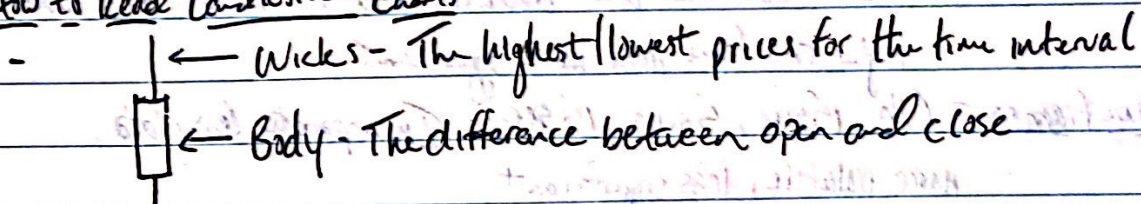 How to Read Candlestick Charts
- Wicks - The highest/lowest prices for the time interval
Body - The difference between open and close